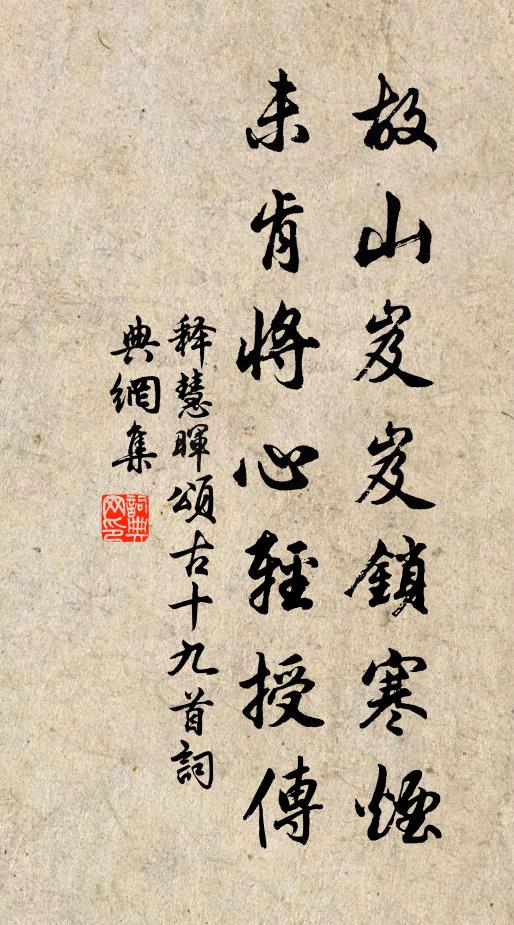 故山岌岌鎖寒煙
未肯將心輕授傳
釋慧暉頌古十九首詞
典網集
詞典网印